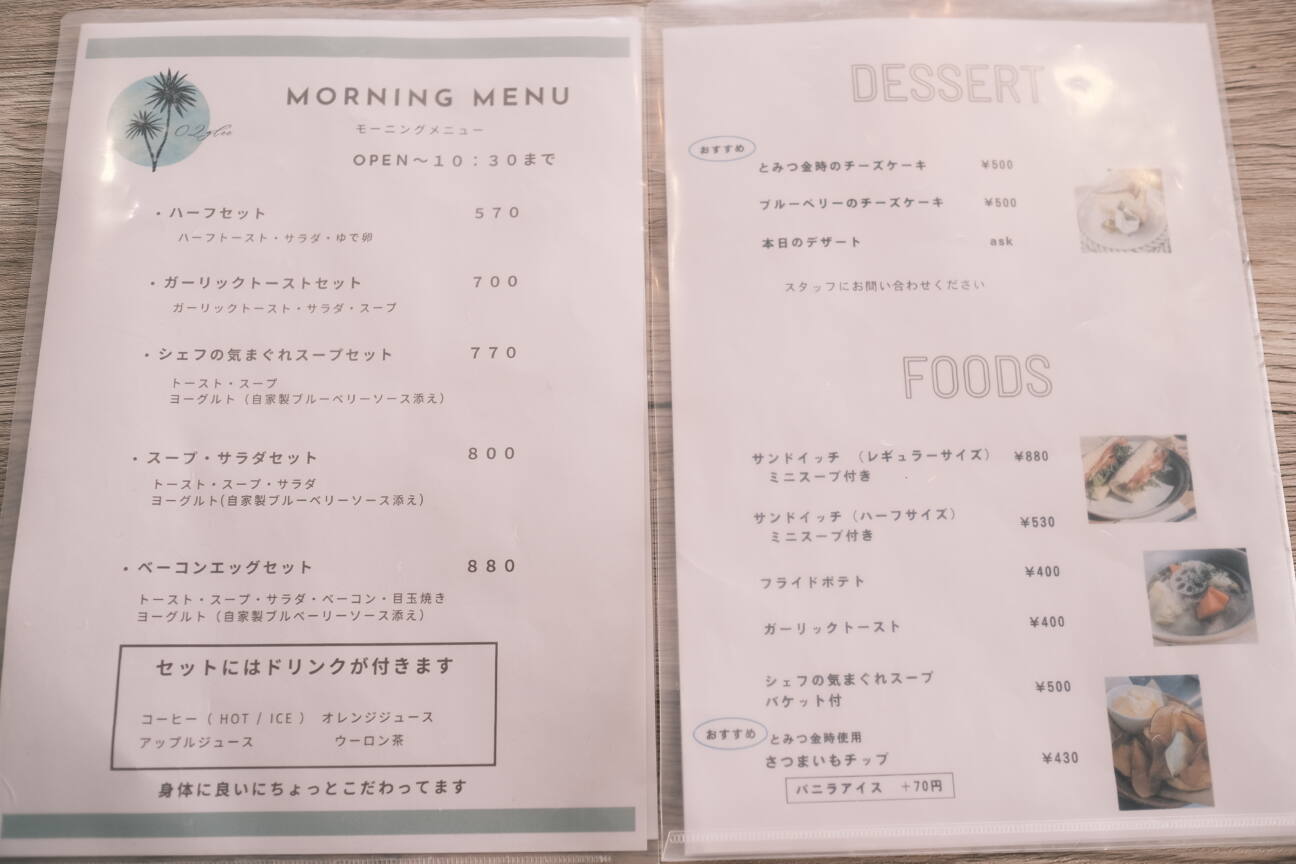 MORNING MENU
モーニングメニュー
OPEN～10：30まで
・ハーフセット 570
ハーフトースト・サラダ・ゆで卵
・ガーリックトーストセット 700
ガーリックトースト・サラダ・スープ
・シェフの気まぐれスープセット 770
トースト・スープ
ヨーグルト（自家製ブルーベリーソース添え）
・スープ・サラダセット 800
トースト・スープ・サラダ
ヨーグルト(自家製ブルーベリーソース添え)
・ベーコンエッグセット 880
トースト・スープ・サラダ・ベーコン・目玉焼き
ヨーグルト（自家製ブルベーリーソース添え）
セットにはドリンクが付きます
コーヒー（ HOT / ICE ） オレンジジュース
アップルジュース ウーロン茶
身体に良いにちょっとこだわってます
DESSERT
おすすめ
とみつ金時のチーズケーキ ¥500
ブルーベリーのチーズケーキ ¥500
本日のデザート ask
スタッフにお問い合わせください
FOODS
サンドイッチ （レギュラーサイズ） ¥880
ミニスープ付き
サンドイッチ（ハーフサイズ） ¥530
ミニスープ付き
フライドポテト ¥400
ガーリックトースト ¥400
シェフの気まぐれスープ ¥500
バケット付
おすすめ とみつ金時使用
さつまいもチップ ¥430
バニラアイス ＋70円